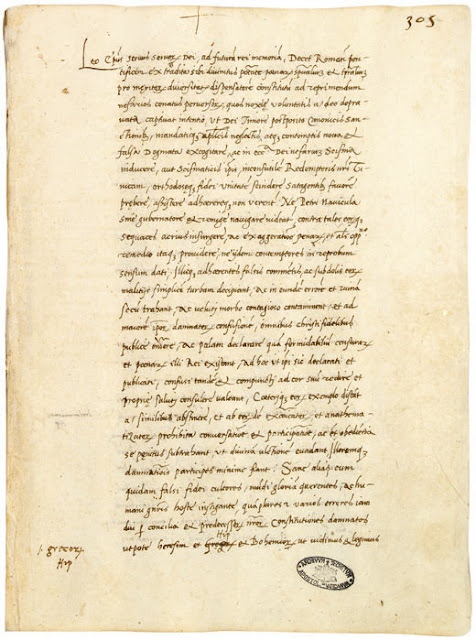 305
Leo Ep̃us servus servoꝝ Dei, ad futurã rei memoriã, Decet Romanũ pon-
tificem ex tradita sibi divinitus põtate penarꝝ sp̃ualiuꝫ et tp̃aliuꝫ
pro meritoꝝ diversitate dispensatorẽ constitui ad reprimendum
nefarios conatus perversoꝝ, quos noxię voluntatis a deo depra-
vata captivat intentio ut Dei Timore postposito Canonicis San-
ctionibꝫ, mandatisqꝫ apl̃icis neglectis, atqꝫ contemptis nova et
falsa Dogmata excogitare, ac in ecc̃a Dei nefariuꝫ Scisma
inducere, aut Scismaticis ip̃is, inconsutilẽ Redemptoris nr̃i Tu-
nicam, orthodoxęqꝫ fidei unitatẽ scindere Satagentibꝫ favorẽ
prębere, assistere adhęrereqꝫ non verent̃ Ne Petri Navicula
sine gubernatore et remige navigare videat̃, contra tales eorqꝫ
sequaces acrius insurgere, ac exaggeratioñe penarꝝ, et aliõ opp.ⁿᵒ
remedio itaqꝫ providere, ne ijdem contemptores in reprobum
sensum dati. Illisqꝫ adhęrentes falsis commentis, ac subdolis eorꝝ
malitijs simplicẽ turbam decipiant, ac in eundẽ errorẽ et ruinã
secũ trahant, ac veluti morbo contagioso contaminent, et ad
maiorẽ ip̃orꝝ damnatorꝝ confusionẽ, omnibus christifidelibus
publicẽ ondere, ac palam declarare quã formidabiliũ censurarꝝ
et poenarꝝ illi Rei existant, Ad hoc ut ipsi sic declarati et
publicati, confusi tandẽ et compuncti, ad cor suũ redire et
proprię saluti consulere valeant, Cęteriqꝫ eorꝝ exemplo discãt
a, similibus abstinere, et ab eorꝝ de excoicatorꝝ et anathema-
tizatorꝝ prohibita conversatione et participatione, ac et obedientia
se penitus subtrahant, ut divinã ultionẽ evadant Illorumqꝫ
damnationis participes minime fiant. Sane alias cum
quidam falsi fidei cultores, mũdi gloriã querentes, ac hu-
mani gñris hoste instigante quã plures et varios errores iam
duĩ p concilia et predecessorꝝ nr̃orꝝ Constitutiones damnatos
utpote heresim et Bohemorꝝ, ut vidimus et legimus